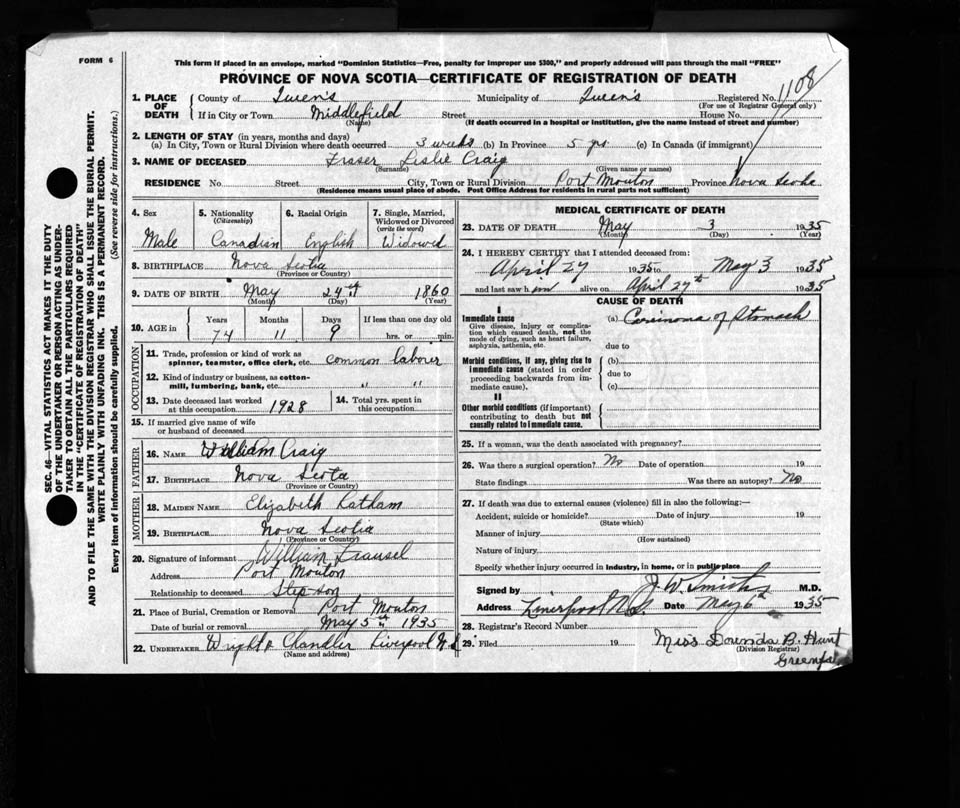 FORM 6
This form if placed in an envelope, marked "Dominion Statistics—Free, penalty for improper use $300," and properly addressed will pass through the mail "FREE"
PROVINCE OF NOVA SCOTIA—CERTIFICATE OF REGISTRATION OF DEATH
1. PLACE OF DEATH
County of Queen's Municipality of Queen's Registered No. 1108
(For use of Registrar General only)
If in City or Town Middlefield Street House No.
(Name) (If death occurred in a hospital or institution, give the name instead of street and number)
2. LENGTH OF STAY (in years, months and days)
(a) In City, Town or Rural Division where death occurred 3 weeks (b) In Province 5 yrs (c) In Canada (if immigrant)
3. NAME OF DECEASED Fraser Leslie Craig
(Surname) (Given name or names)
RESIDENCE No. Street City, Town or Rural Division Port Mouton Province Nova Scotia
(Residence means usual place of abode. Post Office Address for residents in rural parts not sufficient)
4. Sex 5. Nationality (Citizenship) 6. Racial Origin 7. Single, Married, Widowed or Divorced (write the word)
Male Canadian English Widowed
8. BIRTHPLACE Nova Scotia
(Province or Country)
9. DATE OF BIRTH May 24th 1860
(Month) (Day) (Year)
10. AGE in Years Months Days If less than one day old
74 11 9 hrs. or min.
OCCUPATION
11. Trade, profession or kind of work as spinner, teamster, office clerk, etc. common laborer
12. Kind of industry or business, as cotton-mill, lumbering, bank, etc. " "
13. Date deceased last worked at this occupation 1928 14. Total yrs. spent in this occupation
15. If married give name of wife or husband of deceased
FATHER
16. NAME William Craig
17. BIRTHPLACE Nova Scotia
(Province or Country)
MOTHER
18. MAIDEN NAME Elizabeth Latham
19. BIRTHPLACE Nova Scotia
(Province or Country)
20. Signature of informant William
Address Port Mouton
Relationship to deceased Step-son
21. Place of Burial, Cremation or Removal Port Mouton
Date of burial or removal May 5th 1935
22. UNDERTAKER Wright & Chandler Liverpool N.S.
(Name and address)
MEDICAL CERTIFICATE OF DEATH
23. DATE OF DEATH May 3 1935
(Month) (Day) (Year)
24. I HEREBY CERTIFY that I attended deceased from:
April 27 1935 to May 3 1935
and last saw him alive on April 27th 1935
CAUSE OF DEATH
I
Immediate cause (a) Carcinoma of Stomach
Give disease, injury or complication which caused death, not the mode of dying, such as heart failure, asphyxia, asthenia, etc.
due to
Morbid conditions, if any, giving rise to immediate cause (stated in order proceeding backwards from immediate cause).
(b)
due to
(c)
II
Other morbid conditions (if important) contributing to death but not causally related to immediate cause.
25. If a woman, was the death associated with pregnancy?
26. Was there a surgical operation? No Date of operation 19
State findings Was there an autopsy? No
27. If death was due to external causes (violence) fill in also the following:—
Accident, suicide or homicide? Date of injury 19
(State which)
Manner of injury
(How sustained)
Nature of injury
Specify whether injury occurred in industry, in home, or in public place
Signed by J. W. Smith M.D.
Address Liverpool N.S. Date May 6th 1935
28. Registrar's Record Number
29. Filed 19 Miss B. Hunt
(Division Registrar)
SEC. 46—VITAL STATISTICS ACT MAKES IT THE DUTY
OF THE UNDERTAKER OR PERSON ACTING AS UNDER-
TAKER TO OBTAIN ALL THE PARTICULARS REQUIRED
IN THE "CERTIFICATE OF REGISTRATION OF DEATH"
AND TO FILE THE SAME WITH THE DIVISION REGISTRAR WHO SHALL ISSUE THE BURIAL PERMIT.
WRITE PLAINLY WITH UNFADING INK. THIS IS A PERMANENT RECORD.
Every item of information should be carefully supplied. (See reverse side for instructions.)